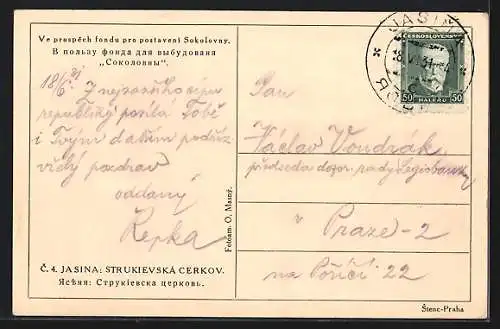 Ve prospěch fondu pro postavení Sokolovny.
В пользу фонда для выбудованя
„Соколовны“
18/6 31
republiky posílá Tobě
i Tvým dalším
vřelý pozdrav
oddaný
Řepka
Č. 4. JASINA: STRUKIEVSKÁ CERKOV.
Ясѣня: Струкіевска церковь.
Fotoam. O. Masný.
JASIŇA
ČESKOSLOVENSKO
50 HALÉŘŮ 50
Pan
Václav Vondrák
předseda dozor. rady Legiobanky
v Praze-2
na Poříčí 22
Štenc-Praha